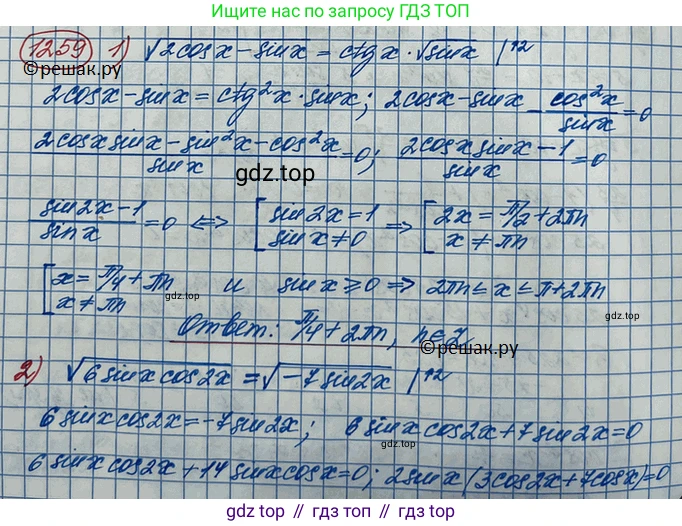 Ищите нас по запросу ГДЗ ТОП
1259 1) √2cosx - sinx = ctg x · √sinx |↑2
©reшак.ру
2cosx - sinx = ctg²x · sinx; 2cosx - sinx - cos²x/sinx = 0
(2cosx sinx - sin²x - cos²x)/sinx = 0; (2cosx sinx - 1)/sinx = 0
gdz.top
(sin2x - 1)/sinx = 0 ⇔ [sin2x = 1 ⇒ [2x = π/2 + 2πn
sinx ≠ 0 x ≠ πn
[x = π/4 + πn и sinx ≥ 0 ⇒ 2πn ≤ x ≤ π + 2πn
x ≠ πn
gdz.top
gdz.top
Ответ: π/4 + 2πn, n∈Z
©reшак.ру
2) √6sinxcos2x = √-7sin2x |↑2
6sinxcos2x = -7sin2x; 6sinxcos2x + 7sin2x = 0
6sinxcos2x + 14sinxcosx = 0; 2sinx(3cos2x + 7cosx) = 0
gdz.top // гдз топ // гдз.топ